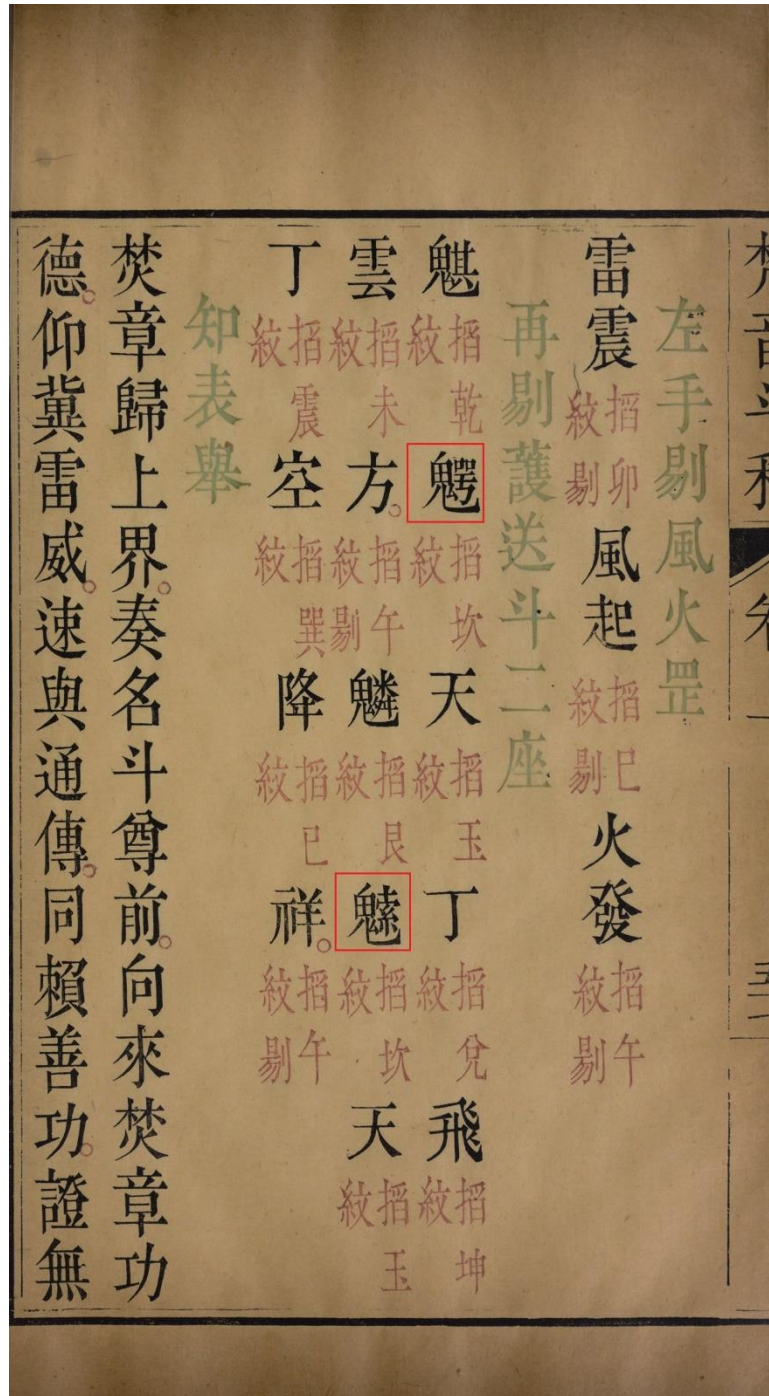 梵音斗科 卷一
左手剔風火罡
雷震搯卯紋剔風起搯巳紋剔火發搯午紋剔
再剔護送斗二座
搯乾紋搯坎紋天搯玉紋丁搯兌紋飛搯坤紋
雲搯未紋方。搯午紋剔搯艮紋搯坎紋天搯玉紋
丁搯震紋空搯巽紋降搯巳紋祥。搯午紋剔
知表舉
焚章歸上界。奏名斗尊前。向來焚章功
德。仰冀雷威。速與通傳。同賴善功。證無